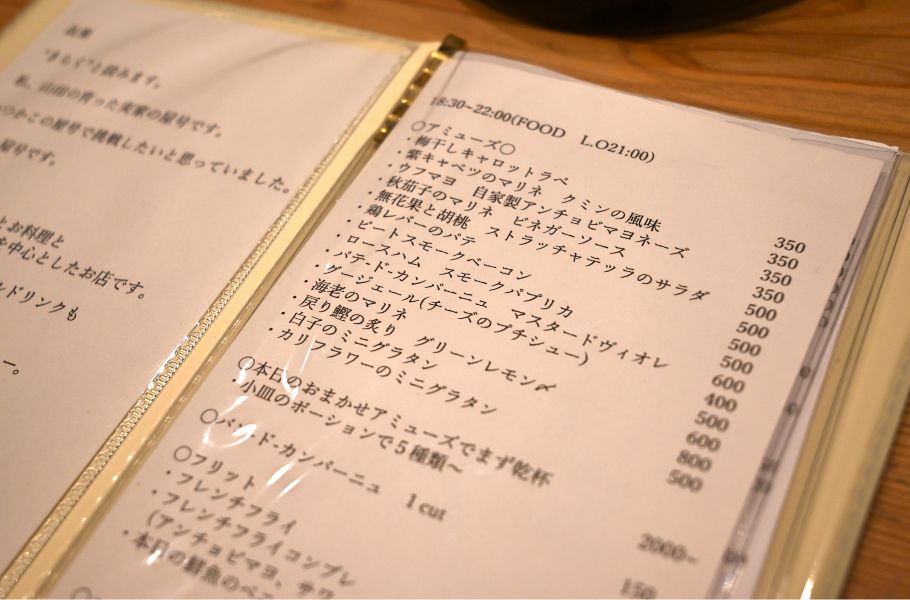 "きらく"と読みます。
私、山田の育った実家の屋号です。
つかこの屋号で挑戦したいと思っていました。
屋号です。
とお料理と
を中心としたお店です。
ルドリンクも
ー。
18:30~22:00(FOOD L.O21:00)
〇アミューズ〇
・梅干しキャロットラペ 350
・紫キャベツのマリネ クミンの風味 350
・ウフマヨ 自家製アンチョビマヨネーズ 350
・秋茄子のマリネ ビネガーソース 350
・無花果と胡桃 ストラッチャテッラのサラダ 500
・鶏レバーのパテ 500
・ビートスモークベーコン 500
・ロースハム スモークパプリカ 500
・パテ-ド-カンパーニュ マスタードヴィオレ 600
・グージェール(チーズのプチシュー) 400
・海老のマリネ グリーンレモン〆 500
・戻り鰹の炙り 600
・白子のミニグラタン 800
・カリフラワーのミニグラタン 500
〇本日のおまかせアミューズでまず乾杯
・小皿のポーションで5種類~ 2000~
〇パン-ド-カンパーニュ 1 cut 150
〇フリット
・フレンチフライ
・フレンチフライコンプレ
(アンチョビマヨ、サワ
・本日の鮮魚のベニ